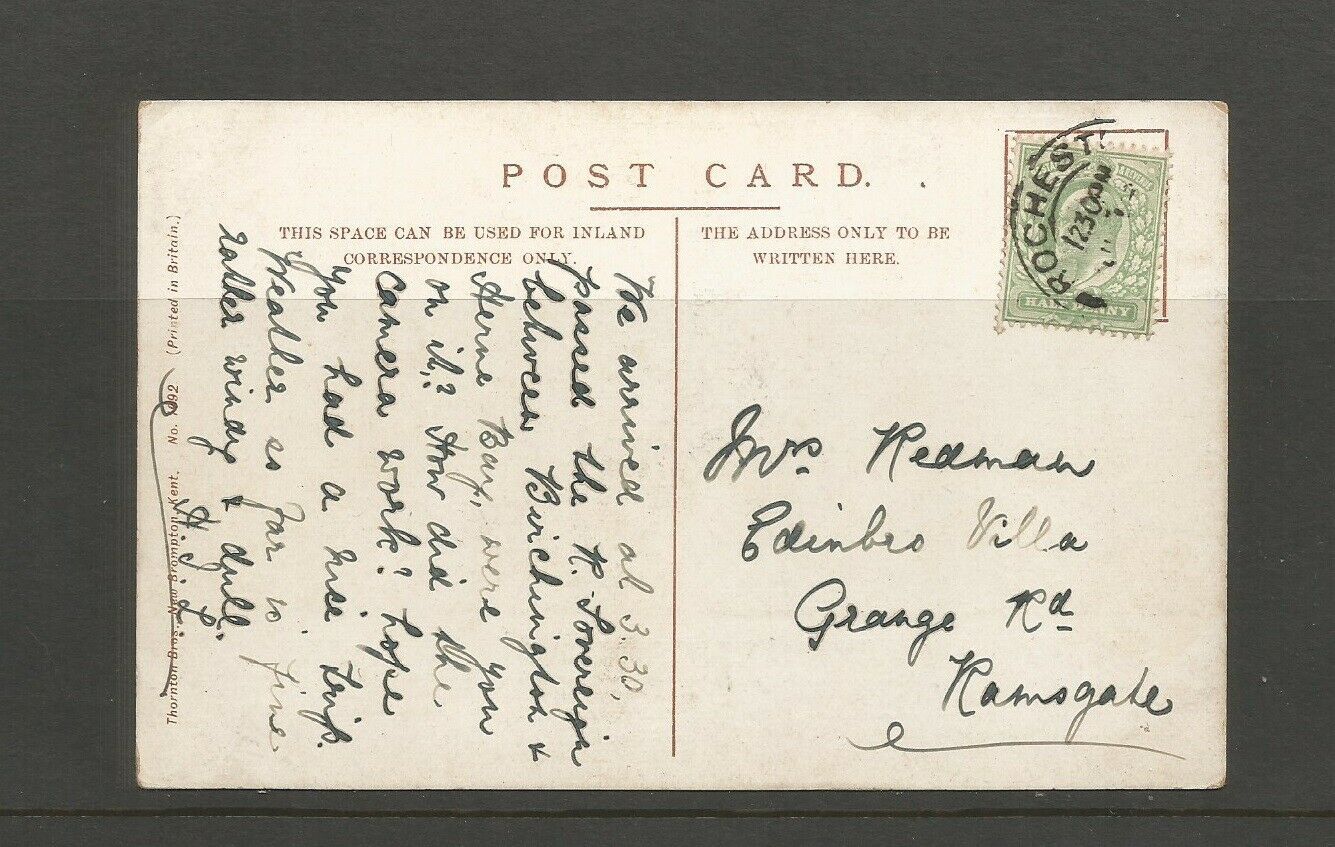 POST CARD.
THIS SPACE CAN BE USED FOR INLAND
CORRESPONDENCE ONLY.
THE ADDRESS ONLY TO BE
WRITTEN HERE.
ROCHEST
1230PM
HALFPENNY
We arrived at 3.30,
passed the R. Sovereign
between Birchington &
Herne Bay, were you
on it,? How did the
camera work? hope
you had a nice trip.
Weather so far is fine
rather windy & dull.
Mrs Redman
Edinbro Villa
Grange Rd
Ramsgate
Thornton Bros., New Brompton, Kent. (Printed in Britain.)